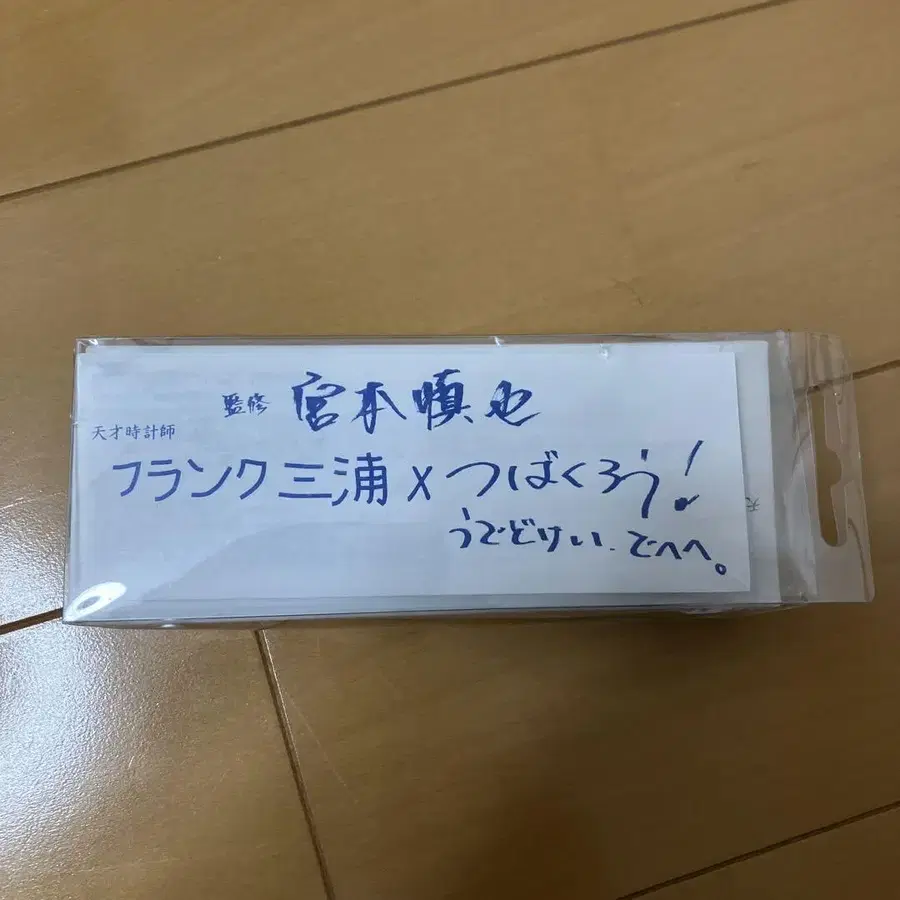 監修 宮本慎也
天才時計師
フランク三浦 x つばくろう!
うでどけい、でへへ。